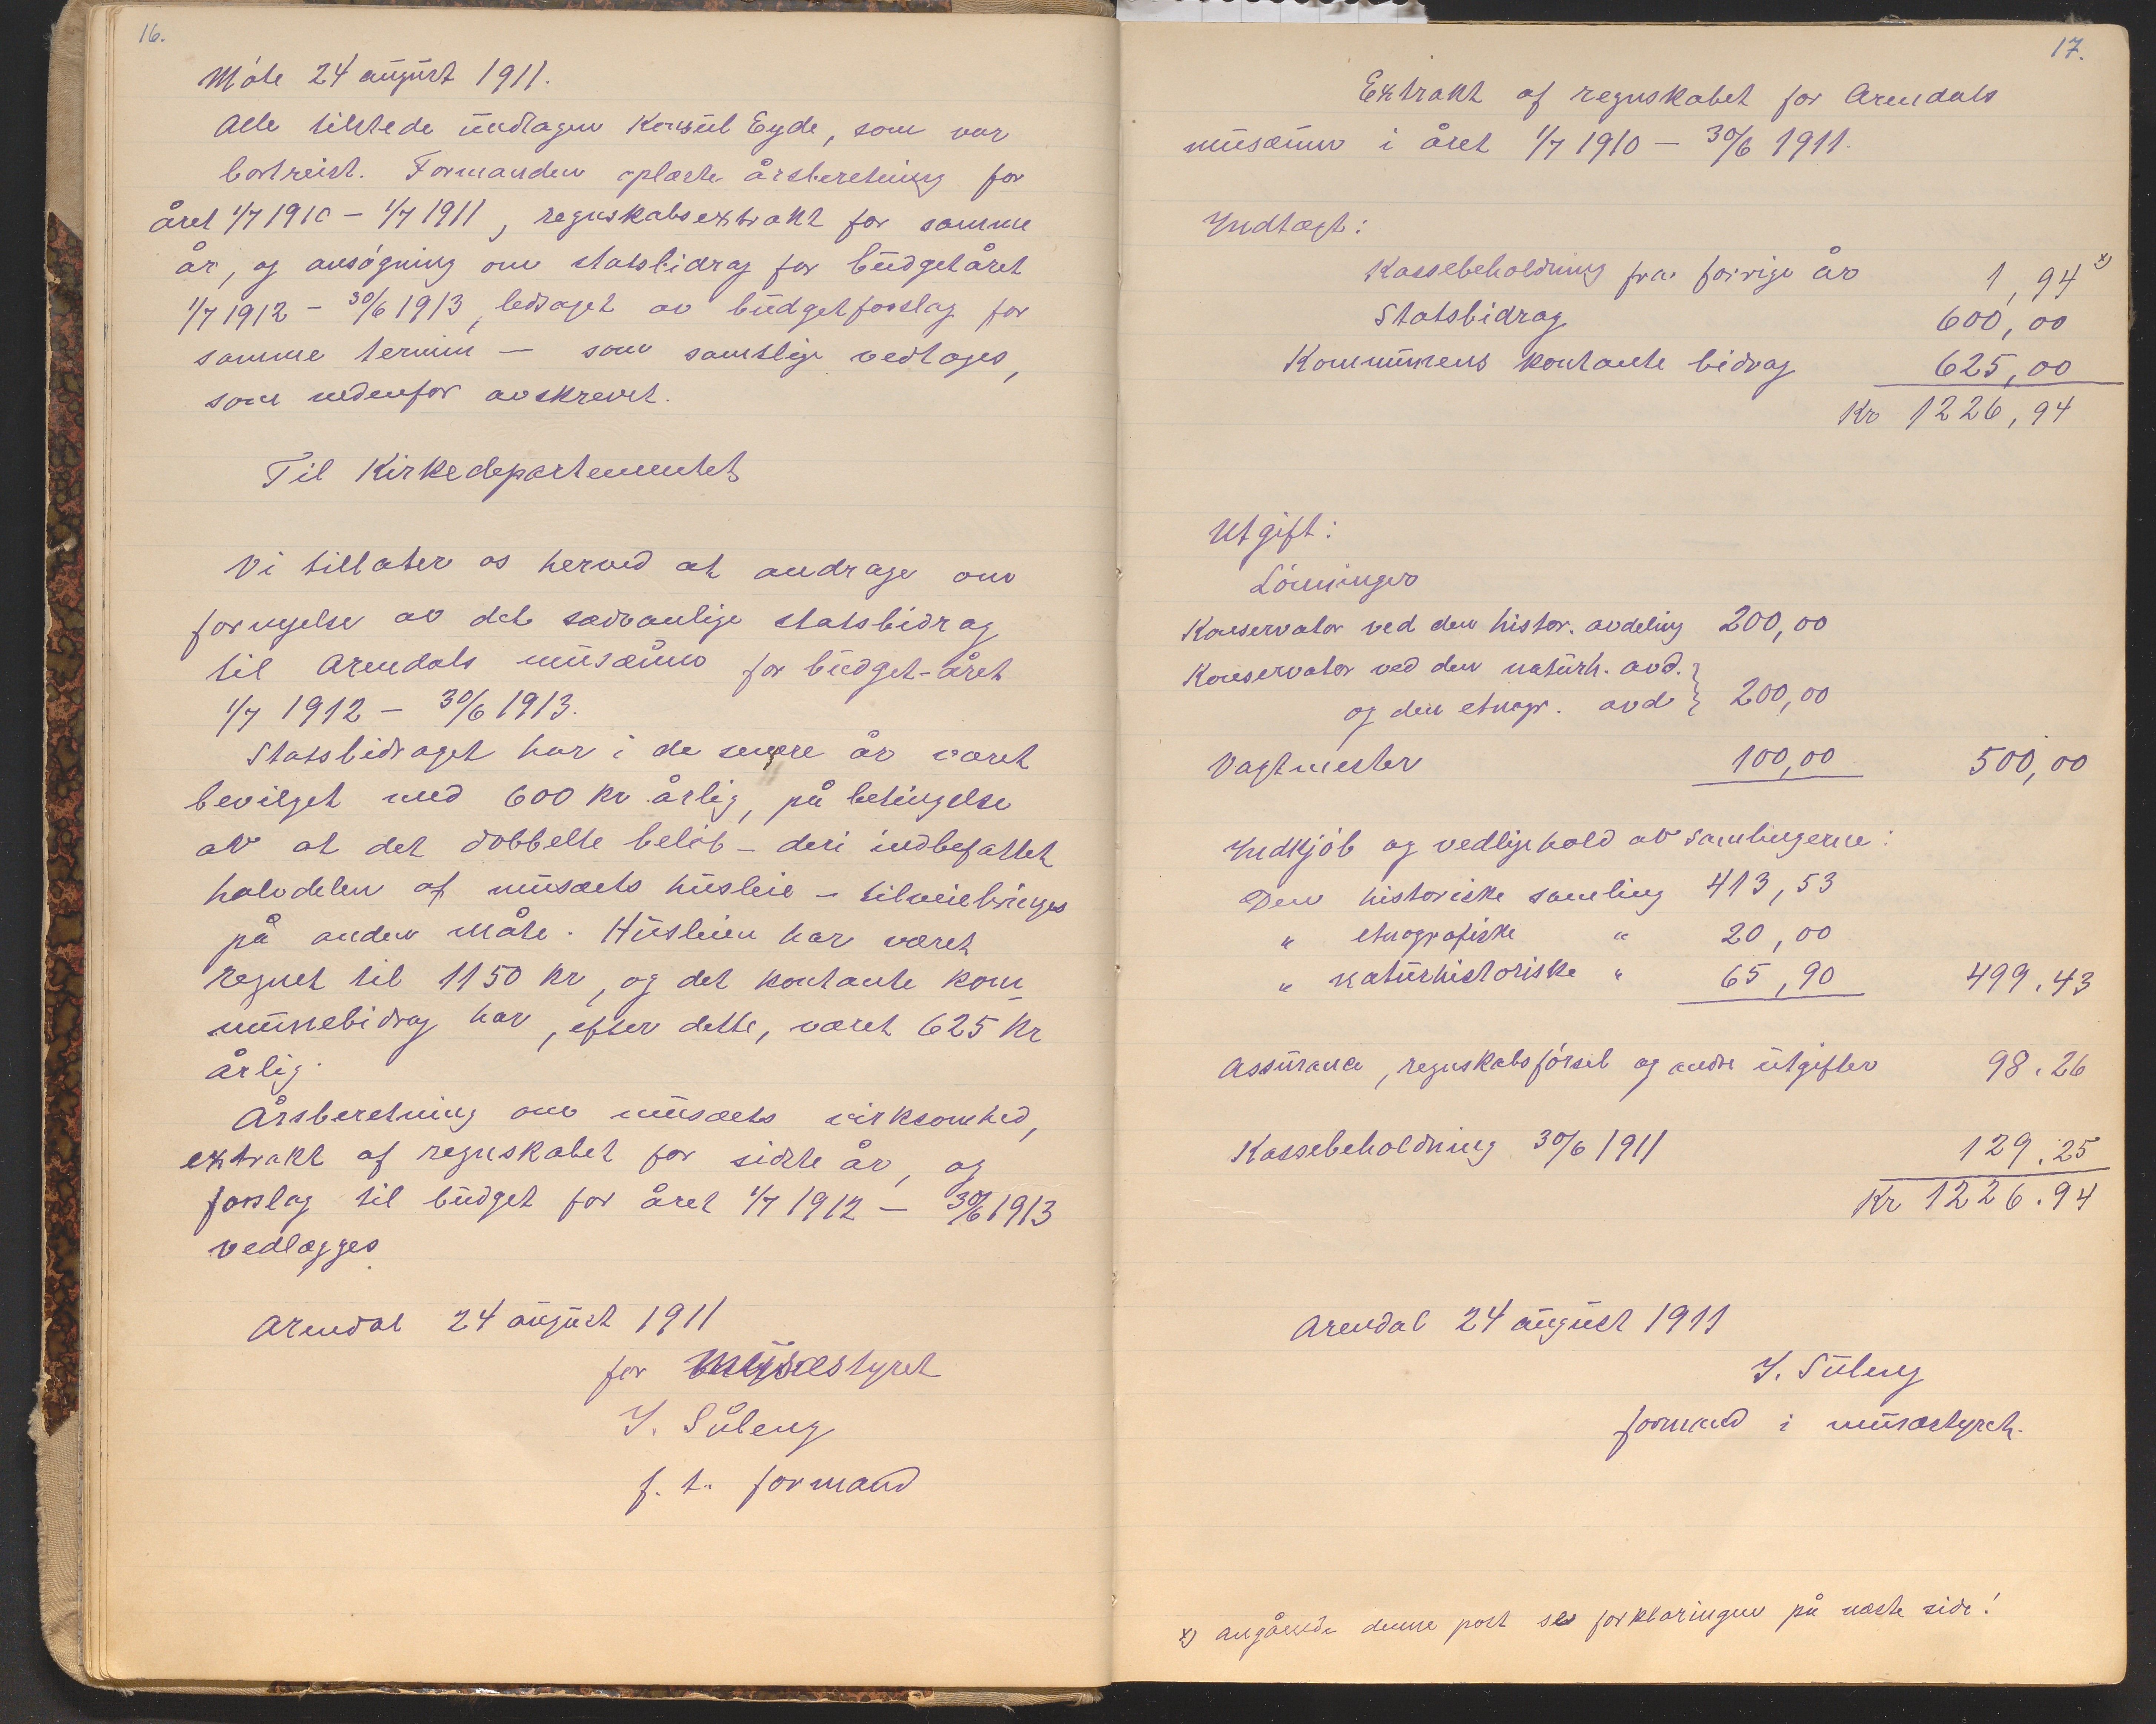 16.
Møte 24 august 1911.
Alle tilstede undtagen Konsul Eyde, som var
bortreist. Formanden oplæste årsberetning for
året 1/7 1910 – 1/7 1911, regnskabsextrakt for samme
år, og ansøgning om statsbidrag for budgetåret
1/7 1912 – 30/6 1913, ledsaget av budgetforslag for
samme termin – som samtlige vedtoges,
som nedenfor avskrevet.
Til Kirkedepartementet
Vi tillater os herved at andrage om
fornyelse av det sedvanlige statsbidrag
til Arendals musæum for budget-året
1/7 1912 – 30/6 1913.
Statsbidraget har i de senere år været
bevilget med 600 kr årlig, på betingelse
av at det dobbelte beløb – deri indbefattet
halvdelen af musæets husleie – tilveiebringes
på anden måte. Husleien har været
regnet til 1150 kr, og det kontante kom-
munebidrag har, efter dette, været 625 kr
årlig.
Årsberetning om musæets virksomhed,
extrakt af regnskabet for sidste år, og
forslag til budget for året 1/7 1912 – 30/6 1913
vedlægges.
Arendal 24 august 1911
for musæstyret
I. Såleng
f. t. formand
17.
Extrakt af regnskabet for Arendals
musæum i året 1/7 1910 – 30/6 1911.
Indtægt:
Kassebeholdning fra forrige år 1,94 x)
Statsbidrag 600,00
Kommunens kontante bidrag 625,00
Kr 1226,94
Utgift:
Lønninger
Konservator ved den histor. avdeling 200,00
Konservator ved den naturh. avd. }
og den etnogr. avd } 200,00
Vagtmester 100,00 500,00
Indkjøb og vedligehold av samlingerne:
Den historiske samling 413,53
" etnografiske " 20,00
" naturhistoriske " 65,90 499.43
Assurance, regnskabsførsel og andre utgifter 98.26
Kassebeholdning 30/6 1911 129.25
Kr 1226.94
Arendal 24 august 1911
I. Såleng
formand i musæstyret.
x) angående denne post se forklaringen på næste side!